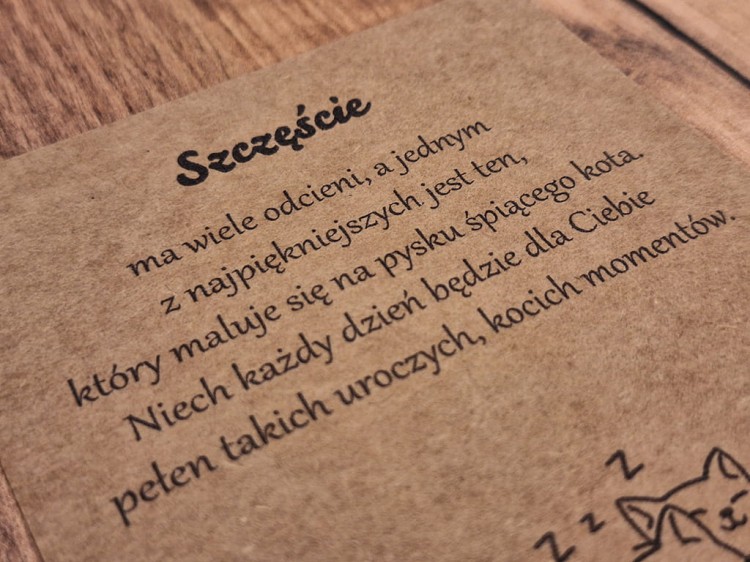 Szczęście
ma wiele odcieni, a jednym
z najpiękniejszych jest ten,
który maluje się na pysku śpiącego kota.
Niech każdy dzień będzie dla Ciebie
pełen takich uroczych, kocich momentów.
Z
z
Z